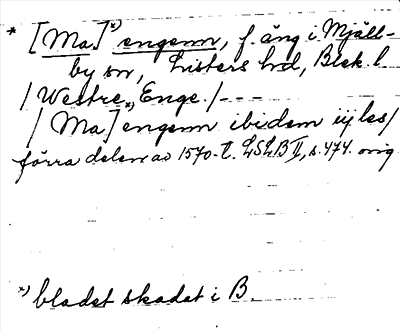 * [Ma.]*) engenn, f. äng i Mjäll-
by sn, Listers hd, Blek. l.
/Westre Enge./---
/Ma]*) engenn ibidem iij les/
förra delen av 1570-t. LSLB II, s. 474. orig
*) bladet skadat i B.